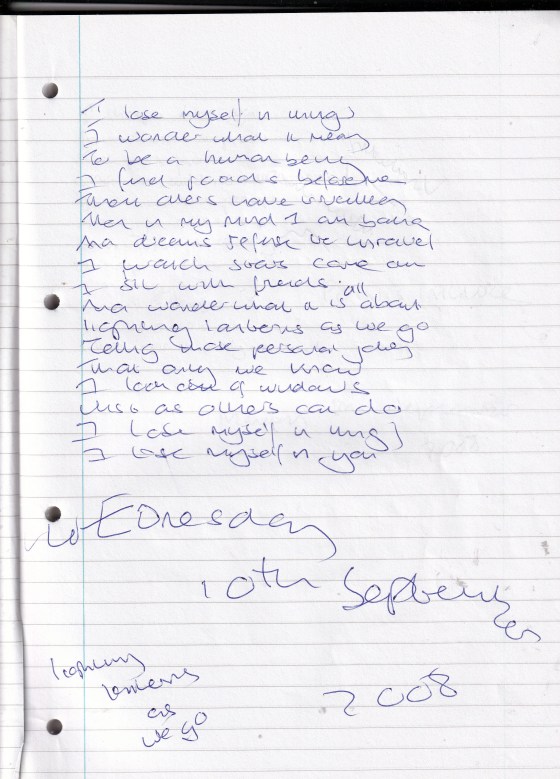 I lose myself in things
I wonder what it means
To be a human being
I find roads before me
That others have travelled
When in my mind I am being
And dreams refuse to unravel
I watch stars come out
I sit with friends all
And wonder what it is about
lightning lanterns as we go
Telling those personal jokes
That only we know
I look out of windows
Just as others can do
I lose myself in things
I lose myself in you
WEDnesday
10th September
2008
lightning
lanterns
as
we go